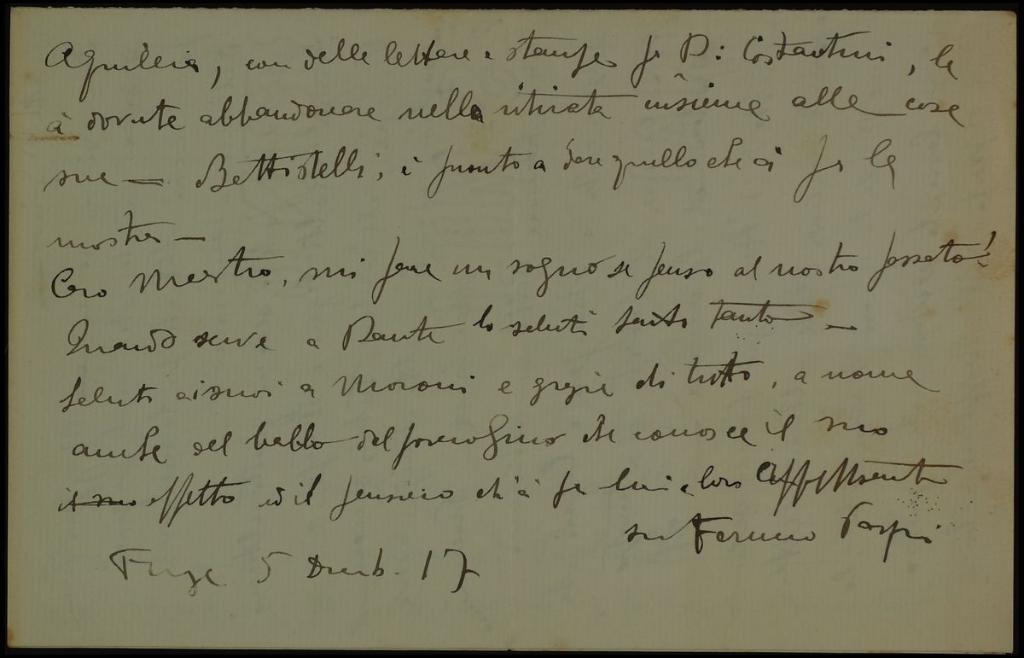 Aquileia, con delle lettere e stampe per D: Costantini, la
à dovute abbandonare nella ritirata insieme alle cose
sue — Battistelli, è pronto a dare quello che à per la
mostra —
Caro Maestro, mi pare un sogno se penso al nostro passato!
Quando scrive a Dante lo saluti tanto tanto —
Saluti ai suoi a Moroni e grazie di tutto, a nome
anche del babbo del povero Gino che conosce il suo
affetto ed il pensiero ch'à per lui e loro Affettuosamente
suo Ferruccio Pasqui
Firenze 5 Dicemb. 17